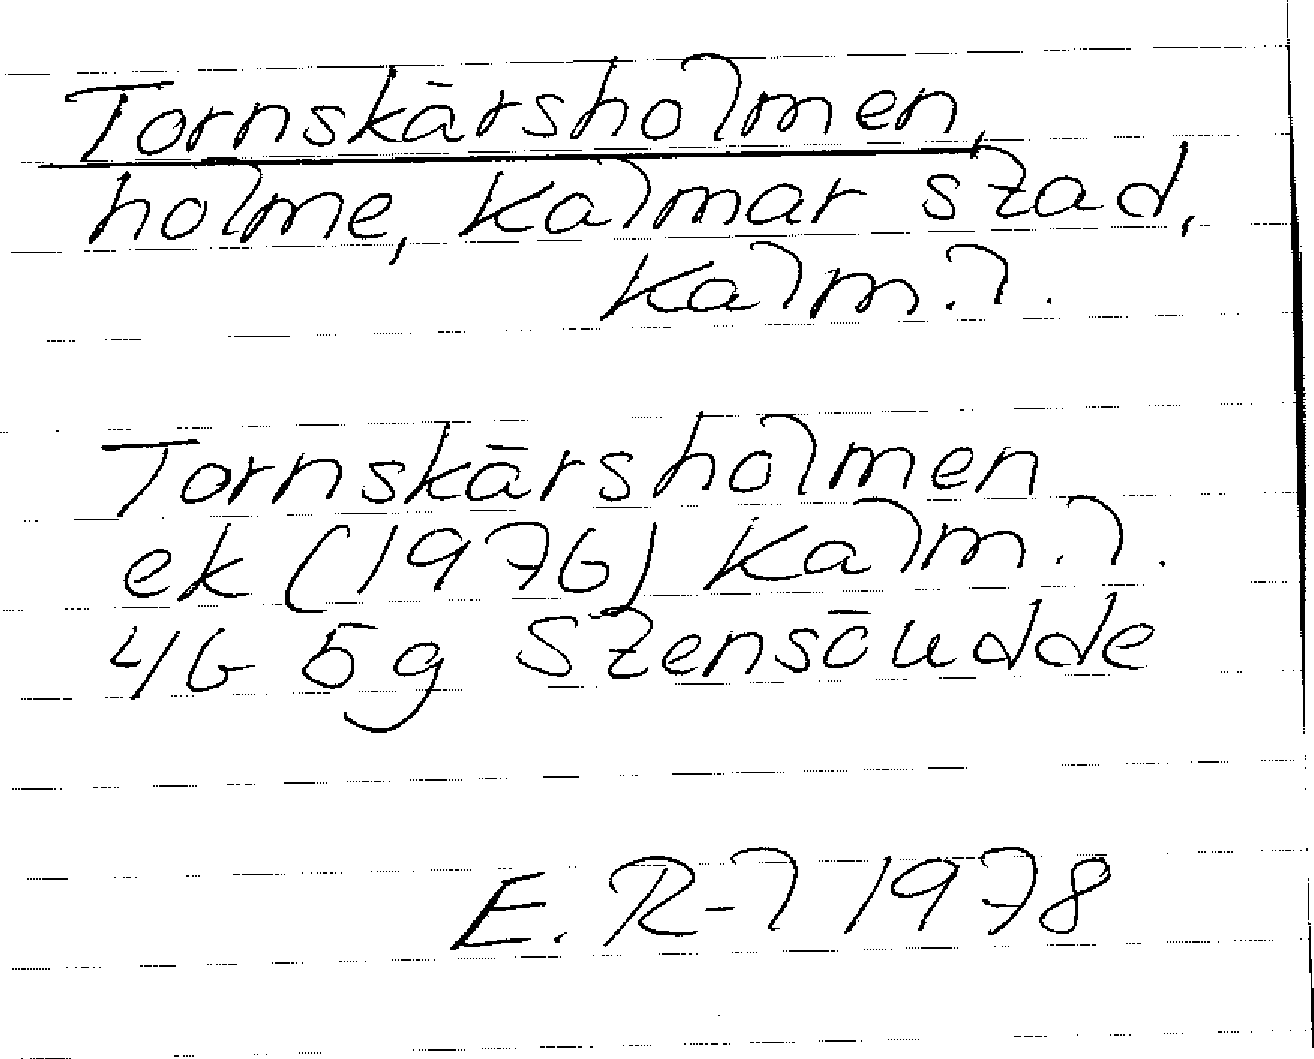 Tornskärsholmen,
holme, Kalmar stad,
Kalm. l.
Tornskärsholmen
ek (1976) Kalm. l.
4G 5g Stensöudde
E. R-l 1978